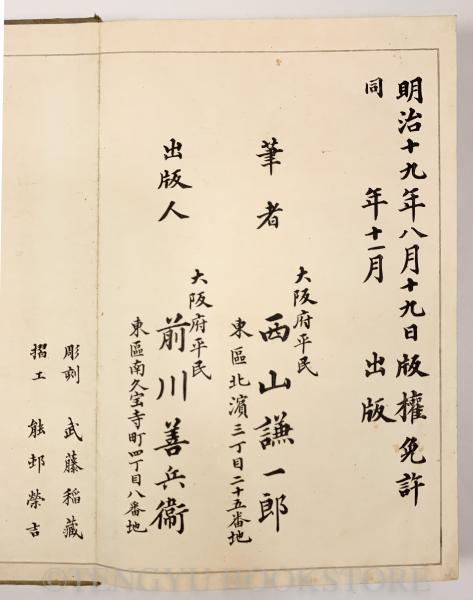 明治十九年八月十九日版權免許
同　年十一月　出版
大阪府平民
筆者　西山謙一郎
東區北濱三丁目二十五番地
大阪府平民
出版人　前川善兵衞
東區南久宝寺町四丁目八番地
彫刻　武藤稲藏
摺工　熊邨榮吉
©TENGYU BOOKSTORE